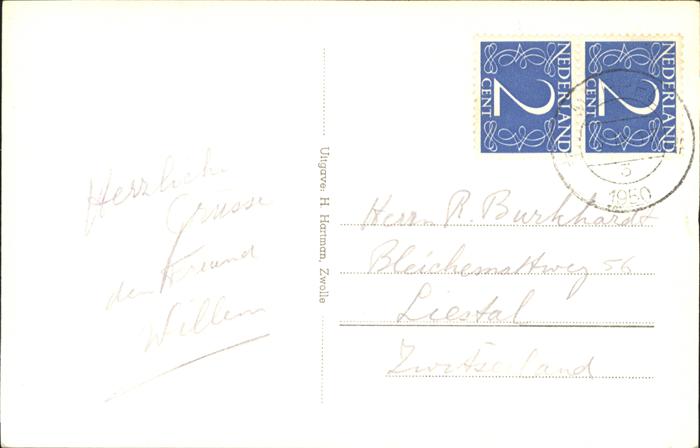 Herzliche
Grüsse
den Freund
Willem
Uitgave: H. Hartman, Zwolle
NEDERLAND
2
CENT
NEDERLAND
2
CENT
3
1950
Herrn R. Burkhardt
Bleichemattweg 56
Liestal
Zwitserland